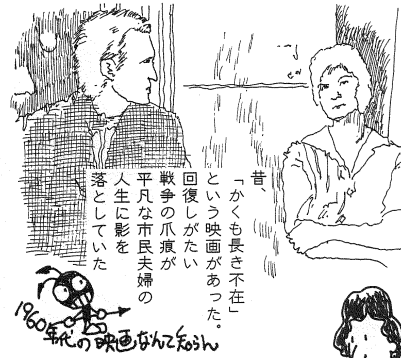 昔、
「かくも長き不在」
という映画があった。
回復しがたい
戦争の爪痕が
平凡な市民夫婦の
人生に影を
落としていた
1960年代の映画なんて知らん